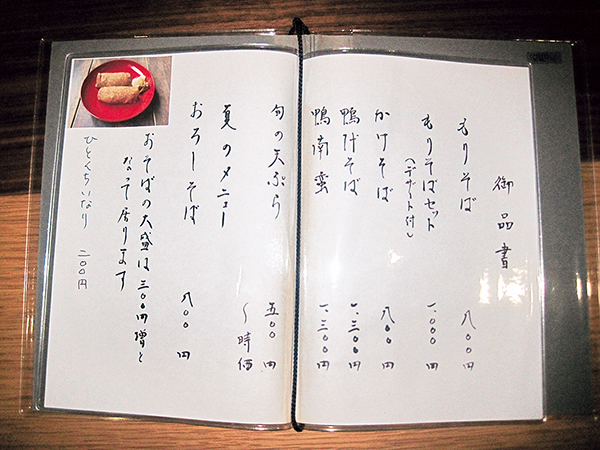 御品書
もりそば 八〇〇円
もりそばセット 一、〇〇〇円
(デザート付)
かけそば 八〇〇円
鴨汁そば 一、三〇〇円
鴨南蛮 一、三〇〇円
旬の天ぷら 五〇〇円
〜時価
夏のメニュー
おろしそば 八〇〇円
おそばの大盛は三〇〇円増と
なって居ります
ひとくちいなり 二〇〇円